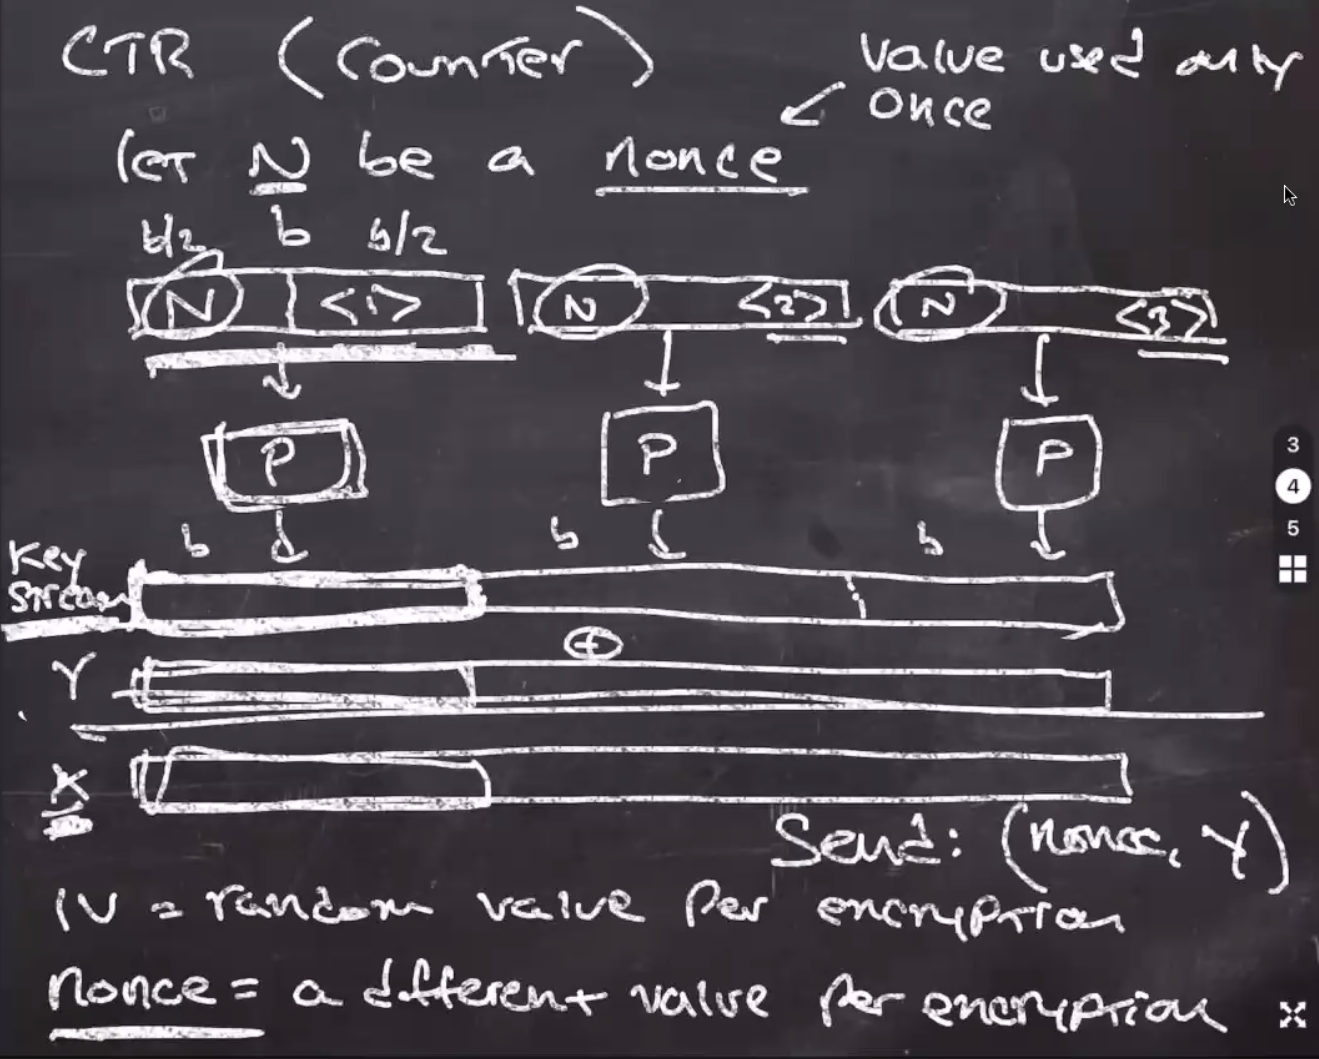 CTR (Counter)
value used only
once
let N be a nonce
b/2 b b/2
N <1> N <2> N <3>
P P P
b b b
Key
Stream
⊕
Y
X
Send: (nonce, Y)
IV = random value per encryption
nonce = a different value per encryption
3
4
5